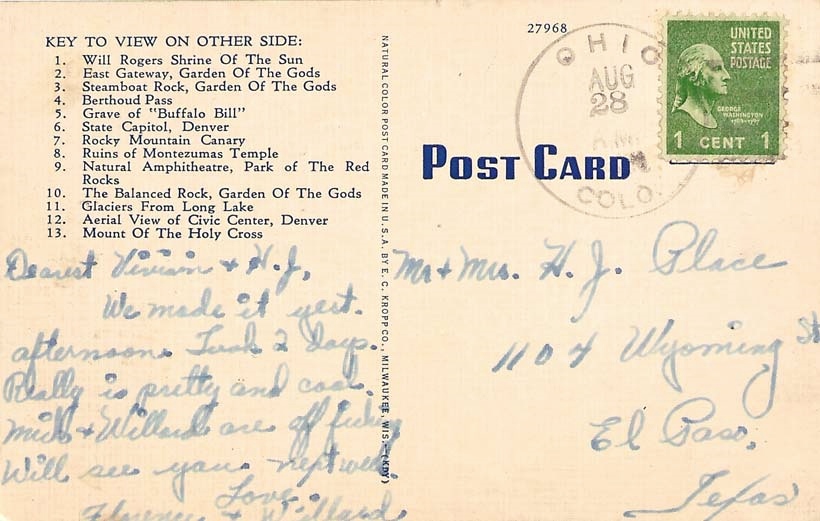 KEY TO VIEW ON OTHER SIDE:
1. Will Rogers Shrine Of The Sun
2. East Gateway, Garden Of The Gods
3. Steamboat Rock, Garden Of The Gods
4. Berthoud Pass
5. Grave of "Buffalo Bill"
6. State Capitol, Denver
7. Rocky Mountain Canary
8. Ruins of Montezumas Temple
9. Natural Amphitheatre, Park of The Red
Rocks
10. The Balanced Rock, Garden Of The Gods
11. Glaciers From Long Lake
12. Aerial View of Civic Center, Denver
13. Mount Of The Holy Cross
Dearest Vivian + H.J,
We made it yest.
afternoon. Took 2 days.
Really is pretty and cool.
+ Willard are off fishing
Will see you next week.
Love.
Florence + Willard
NATURAL COLOR POST CARD MADE IN U.S.A. BY E. C. KROPP CO., MILWAUKEE, WIS.—(KDY)
27968
OHIO
AUG
28
A.M.
COLO.
UNITED
STATES
POSTAGE
GEORGE
WASHINGTON
1 CENT 1
POST CARD
Mr + Mrs. H. J. Place
1104 Wyoming St
El Paso,
Texas